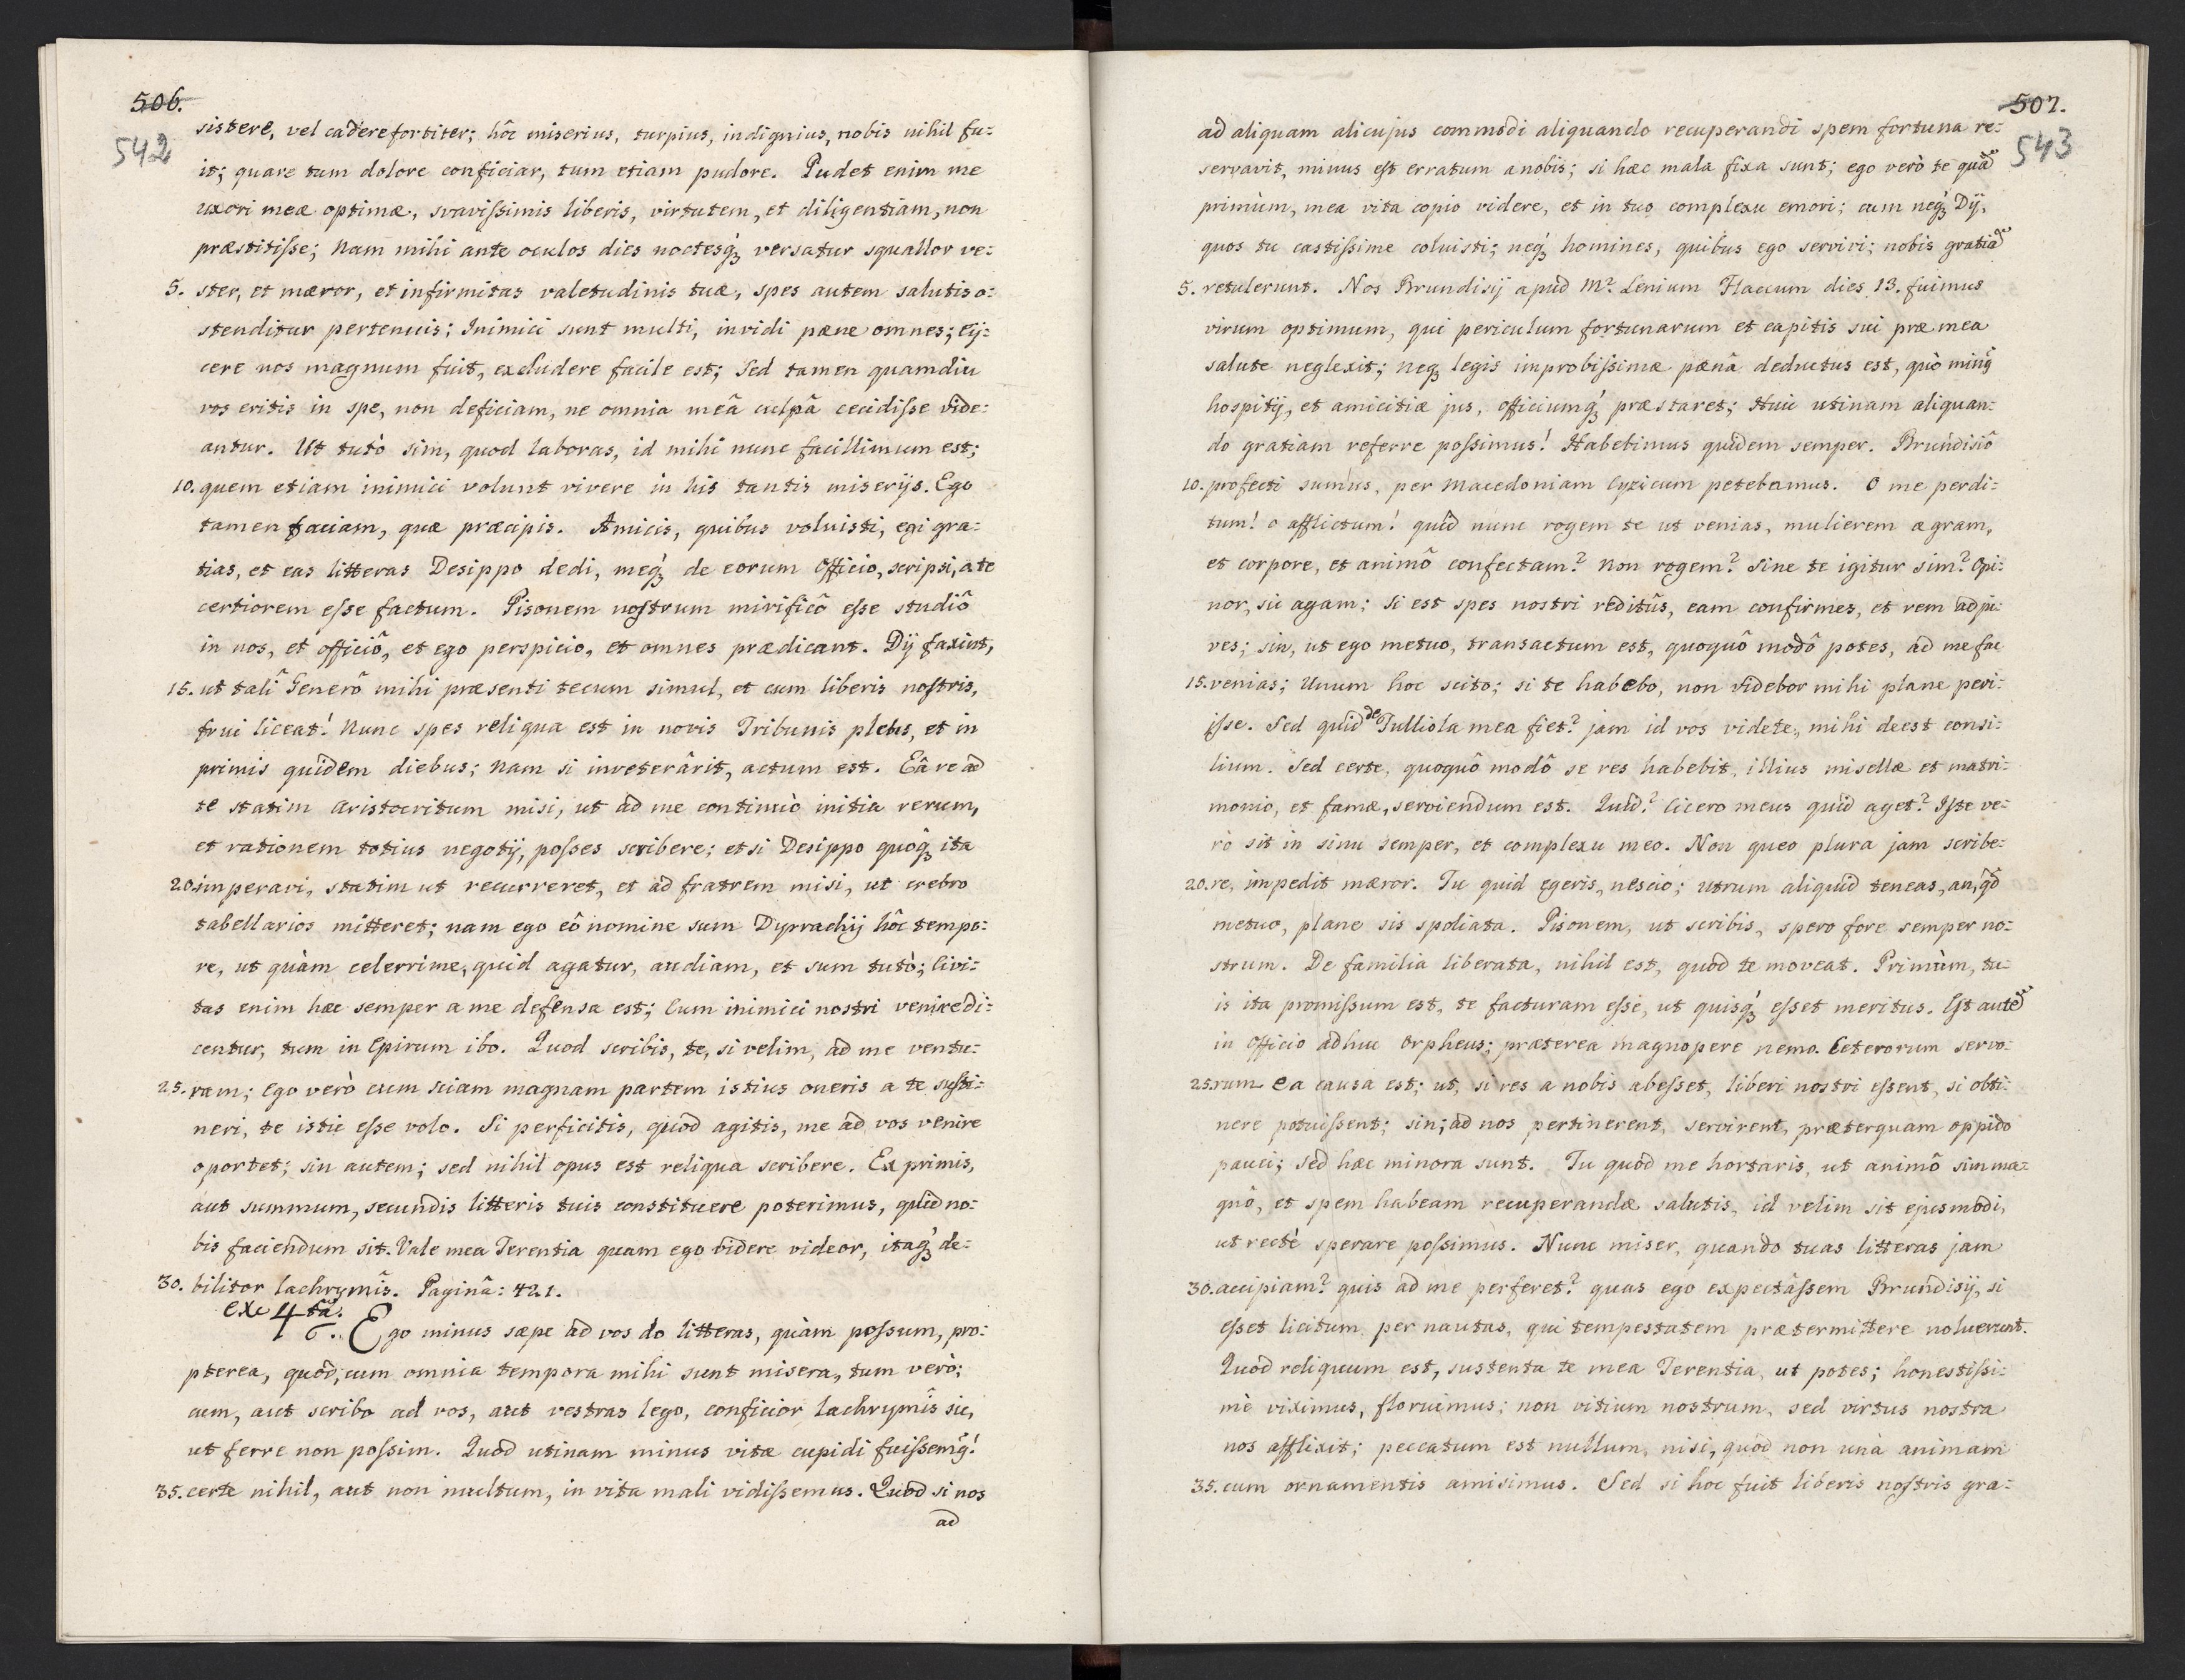 506.
542
sistere, vel cadere fortiter; hôc miserius, turpius, indignius, nobis nihil fu:
it; quare tum dolore conficiar, tum etiam pudore. Pudet enim me
uxori meæ optimæ, svavissimis liberis, virtutem, et diligentiam, non
præstitisse; Nam mihi ante oculos dies noctesq́ꝫ versatur squallor ve:
5. ster, et mæror, et infirmitas valetudinis tuæ, spes autem salutis o:
stenditur pertenuis; Inimici sunt multi, invidi pæne omnes; Eij:
cere nos magnum fuit, excludere facile est; Sed tamen quamdiu
vos eritis in spe, non deficiam, ne omnia meâ culpâ cecidisse vide:
antur. Ut tutò sim, quod laboras, id mihi nunc facillimum est;
10. quem etiam inimici volunt vivere in his tantis miserijs. Ego
tamen faciam, quæ præcipis. Amicis, quibus voluisti, egi gra:
tias, et eas litteras Desippo dedi, meq́ꝫ de eorum Officio, scripsi, a te
certiorem esse factum. Pisonem nostrum mirificô esse studiô
in nos, et officiô, et ego perspicio, et omnes prædicant. Dij faxint,
15. ut talî Generô mihi præsenti tecum simul, et cum liberis nostris,
frui liceat! Nunc spes reliqua est in novis Tribunis plebis, et in
primis quidem diebus; Nam si inveterârit, actum est. Eâ re ad
te statim Aristocritum misi, ut ad me continuò initia rerum,
et rationem totius negotij, posses scribere; etsi Desippo quoq́ꝫ ita
20. imperavi, statim ut recurreret, et ad fratrem misi, ut crebro
tabellarios mitteret; nam ego eô nomine sum Dyrrachij hôc tempo:
re, ut quàm celerrime, quid agatur, audiam, et sum tutò; Civi:
tas enim hæc semper a me defensa est; Cum inimici nostri venire di:
centur, tum in Epirum ibo. Quod scribis, te, si velim, ad me ventu:
25. ram; Ego verò cum sciam magnam partem istius oneris a te susti:
neri, te istic esse volo. Si perficitis, quod agitis, me ad vos venire
oportet; sin autem; sed nihil opus est reliqua scribere. Ex primis,
aut summum, secundis litteris tuis constituere poterimus, quid no:
bis faciendum sit. Vale mea Terentia quam ego videre videor, itaq́ꝫ de:
30. bilitor lachrymîs. Paginâ: 421.
exc 4tâ.
6. Ego minus sæpe ad vos do litteras, quàm possum, pro:
pterea, quòd, cum omnia tempora mihi sunt misera, tum verò;
cum, aut scribo ad vos, aut vestras lego, conficior lachrymîs sic,
ut ferre non possim. Quòd utinam minus vitæ cupidi fuissemq́!
35. certe nihil, aut non multum, in vita mali vidissemus. Quòd si nos
ad
507.
543
ad aliquam alicujus commodi aliquando recuperandi spem fortuna re:
servavit, minus est erratum a nobis; si hæc mala fixa sunt; ego verò te quã
primùm, mea vita copio videre, et in tuo complexu emori; cum neq́ꝫ Dij,
quos tu castissime coluisti; neq́ꝫ homines, quibus ego servivi; nobis gratiã
5. retulerunt. Nos Brundisij apud M? Lenium Flaccum dies 13. fuimus
virum optimum, qui periculum fortunarum et capitis sui præ mea
salute neglexit; neqꝫ legis improbissimæ pænâ deductus est, quò minq́
hospitij, et amicitiæ jus, officiumq́ꝫ præstaret; Huic utinam aliquan:
do gratiam referre possimus! Habebimus quidem semper. Brundisiô
10. profecti sumus, per Macedoniam Cyzicum petebamus. O me perdi:
tum! o afflictum! quid nunc rogem te ut venias, mulierem ægram,
et corpore, et animô confectam? Non rogem? Sine te igitur sim? Opi:
nor, sic agam; Si est spes nostri reditûs, eam confirmes, et rem adju:
ves; sin, ut ego metuo, transactum est, quoquô modô potes, ad me fac
15. venias; Unum hoc scito; si te habebo, non videbor mihi plane peri:
isse. Sed quid de Tulliola mea fiet? jam id vos videte, mihi deest consi:
lium. Sed certe, quoquô modô se res habebit, illius misellæ et matri:
monio, et famæ, serviendum est. Quid? Cicero meus quid aget? Iste ve:
rò sit in sinu semper, et complexu meo. Non queo plura jam scribe:
20. re, impedit mæror. Tu quid egeris, nescio; utrum aliquid teneas, an, qd̃
metuo, plane sis spoliata. Pisonem, ut scribis, spero fore semper no:
strum. De familia liberata, nihil est, quòd te moveat. Primùm, tu:
is ita promissum est, te facturam esse, ut quisq́ꝫ esset meritus. Est autẽ
in Officio adhuc Orpheus; præterea magnopere nemo. Ceterorum servo:
25. rum ea causa est; ut, si res a nobis abesset, liberi nostri essent, si obti:
nere potuissent; sin; ad nos pertinerent, servirent, præterquam oppido
pauci; Sed hæc minora sunt. Tu quòd me hortaris, ut animô sim ma:
gnô, et spem habeam recuperandæ salutis, id velim sit ejusmodi,
ut rectè sperare possimus. Nunc miser, quando tuas litteras jam
30. accipiam? quis ad me perferet? quas ego expectâssem Brundisij, si
esset licitum per nautas, qui tempestatem prætermittere noluerunt.
Quòd reliquum est, sustenta te mea Terentia, ut potes; honestissi:
mè viximus, floruimus; non vitium nostrum, sed virtus nostra
nos afflixit; peccatum est nullum, nisi, quòd non unà animam
35. cum ornamentis amisimus. Sed si hoc fuit liberis nostris gra: